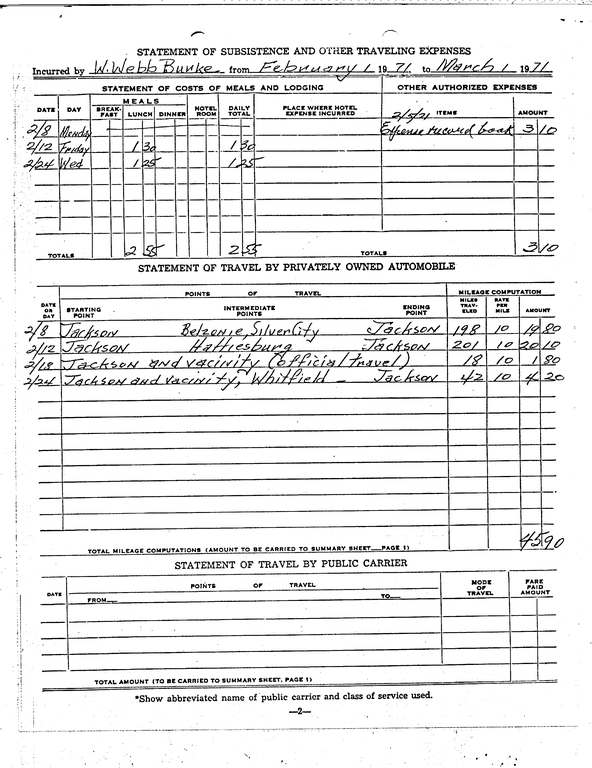 STATEMENT OF SUBSISTENCE AND OTHER TRAVELING EXPENSES
Incurred by W. Webb Burke from February 1 1971, to March 1 1971
STATEMENT OF COSTS OF MEALS AND LODGING OTHER AUTHORIZED EXPENSES
DATE DAY MEALS BREAK-FAST LUNCH DINNER HOTEL ROOM DAILY TOTAL PLACE WHERE HOTEL EXPENSE INCURRED 2/5/71 ITEMS AMOUNT
2/8 Monday Expense record book 3 10
2/12 Friday 1 30 1 30
2/24 Wed 1 25 1 25
TOTALS 2 55 2 55 TOTALS 3 10
STATEMENT OF TRAVEL BY PRIVATELY OWNED AUTOMOBILE
POINTS OF TRAVEL MILEAGE COMPUTATION
DATE OR DAY STARTING POINT INTERMEDIATE POINTS ENDING POINT MILES TRAV-ELED RATE PER MILE AMOUNT
2/8 Jackson Belzonie, Silver City Jackson 198 10 19 80
2/12 Jackson Hattiesburg Jackson 201 10 20 10
2/18 Jackson and vacinity (official travel) 18 10 1 80
2/24 Jackson and vacinity, Whitfield - Jackson 42 10 4 20
TOTAL MILEAGE COMPUTATIONS (AMOUNT TO BE CARRIED TO SUMMARY SHEET—PAGE 1) 45 90
STATEMENT OF TRAVEL BY PUBLIC CARRIER
DATE POINTS OF TRAVEL MODE OF TRAVEL FARE PAID AMOUNT
FROM— TO—
TOTAL AMOUNT (TO BE CARRIED TO SUMMARY SHEET, PAGE 1)
*Show abbreviated name of public carrier and class of service used.
—2—